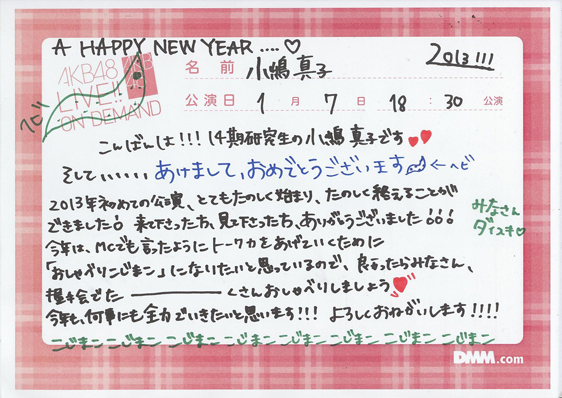 A HAPPY NEW YEAR....♡
2013!!!
AKB48
LIVE!!
ON DEMAND
名前 小嶋真子
公演日 1月7日 18:30 公演
ヘビ
こんばんは!!! 14期研究生の小嶋真子です♥♥
そして、、、、、、あけまして、おめでとうございます←ヘビ
2013年初めての公演、とてもたのしく始まり、たのしく終えることが
できました! 来て下さった方、見て下さった方、ありがとうございました!!!
みなさん
ダイスキ♡
今年は、MCでも言ったようにトークカをあげていくために
「おしゃべりこじまこ」になりたいと思っているので、良かったらみなさん、
握手会でた――――くさんおしゃべりしましょう♥
今年も、何事にも全力でいきたいと思います!!! よろしくおねがいします!!!!
こじまこ こじまこ こじまこ こじまこ こじまこ こじまこ こじまこ こじまこ
DMM.com